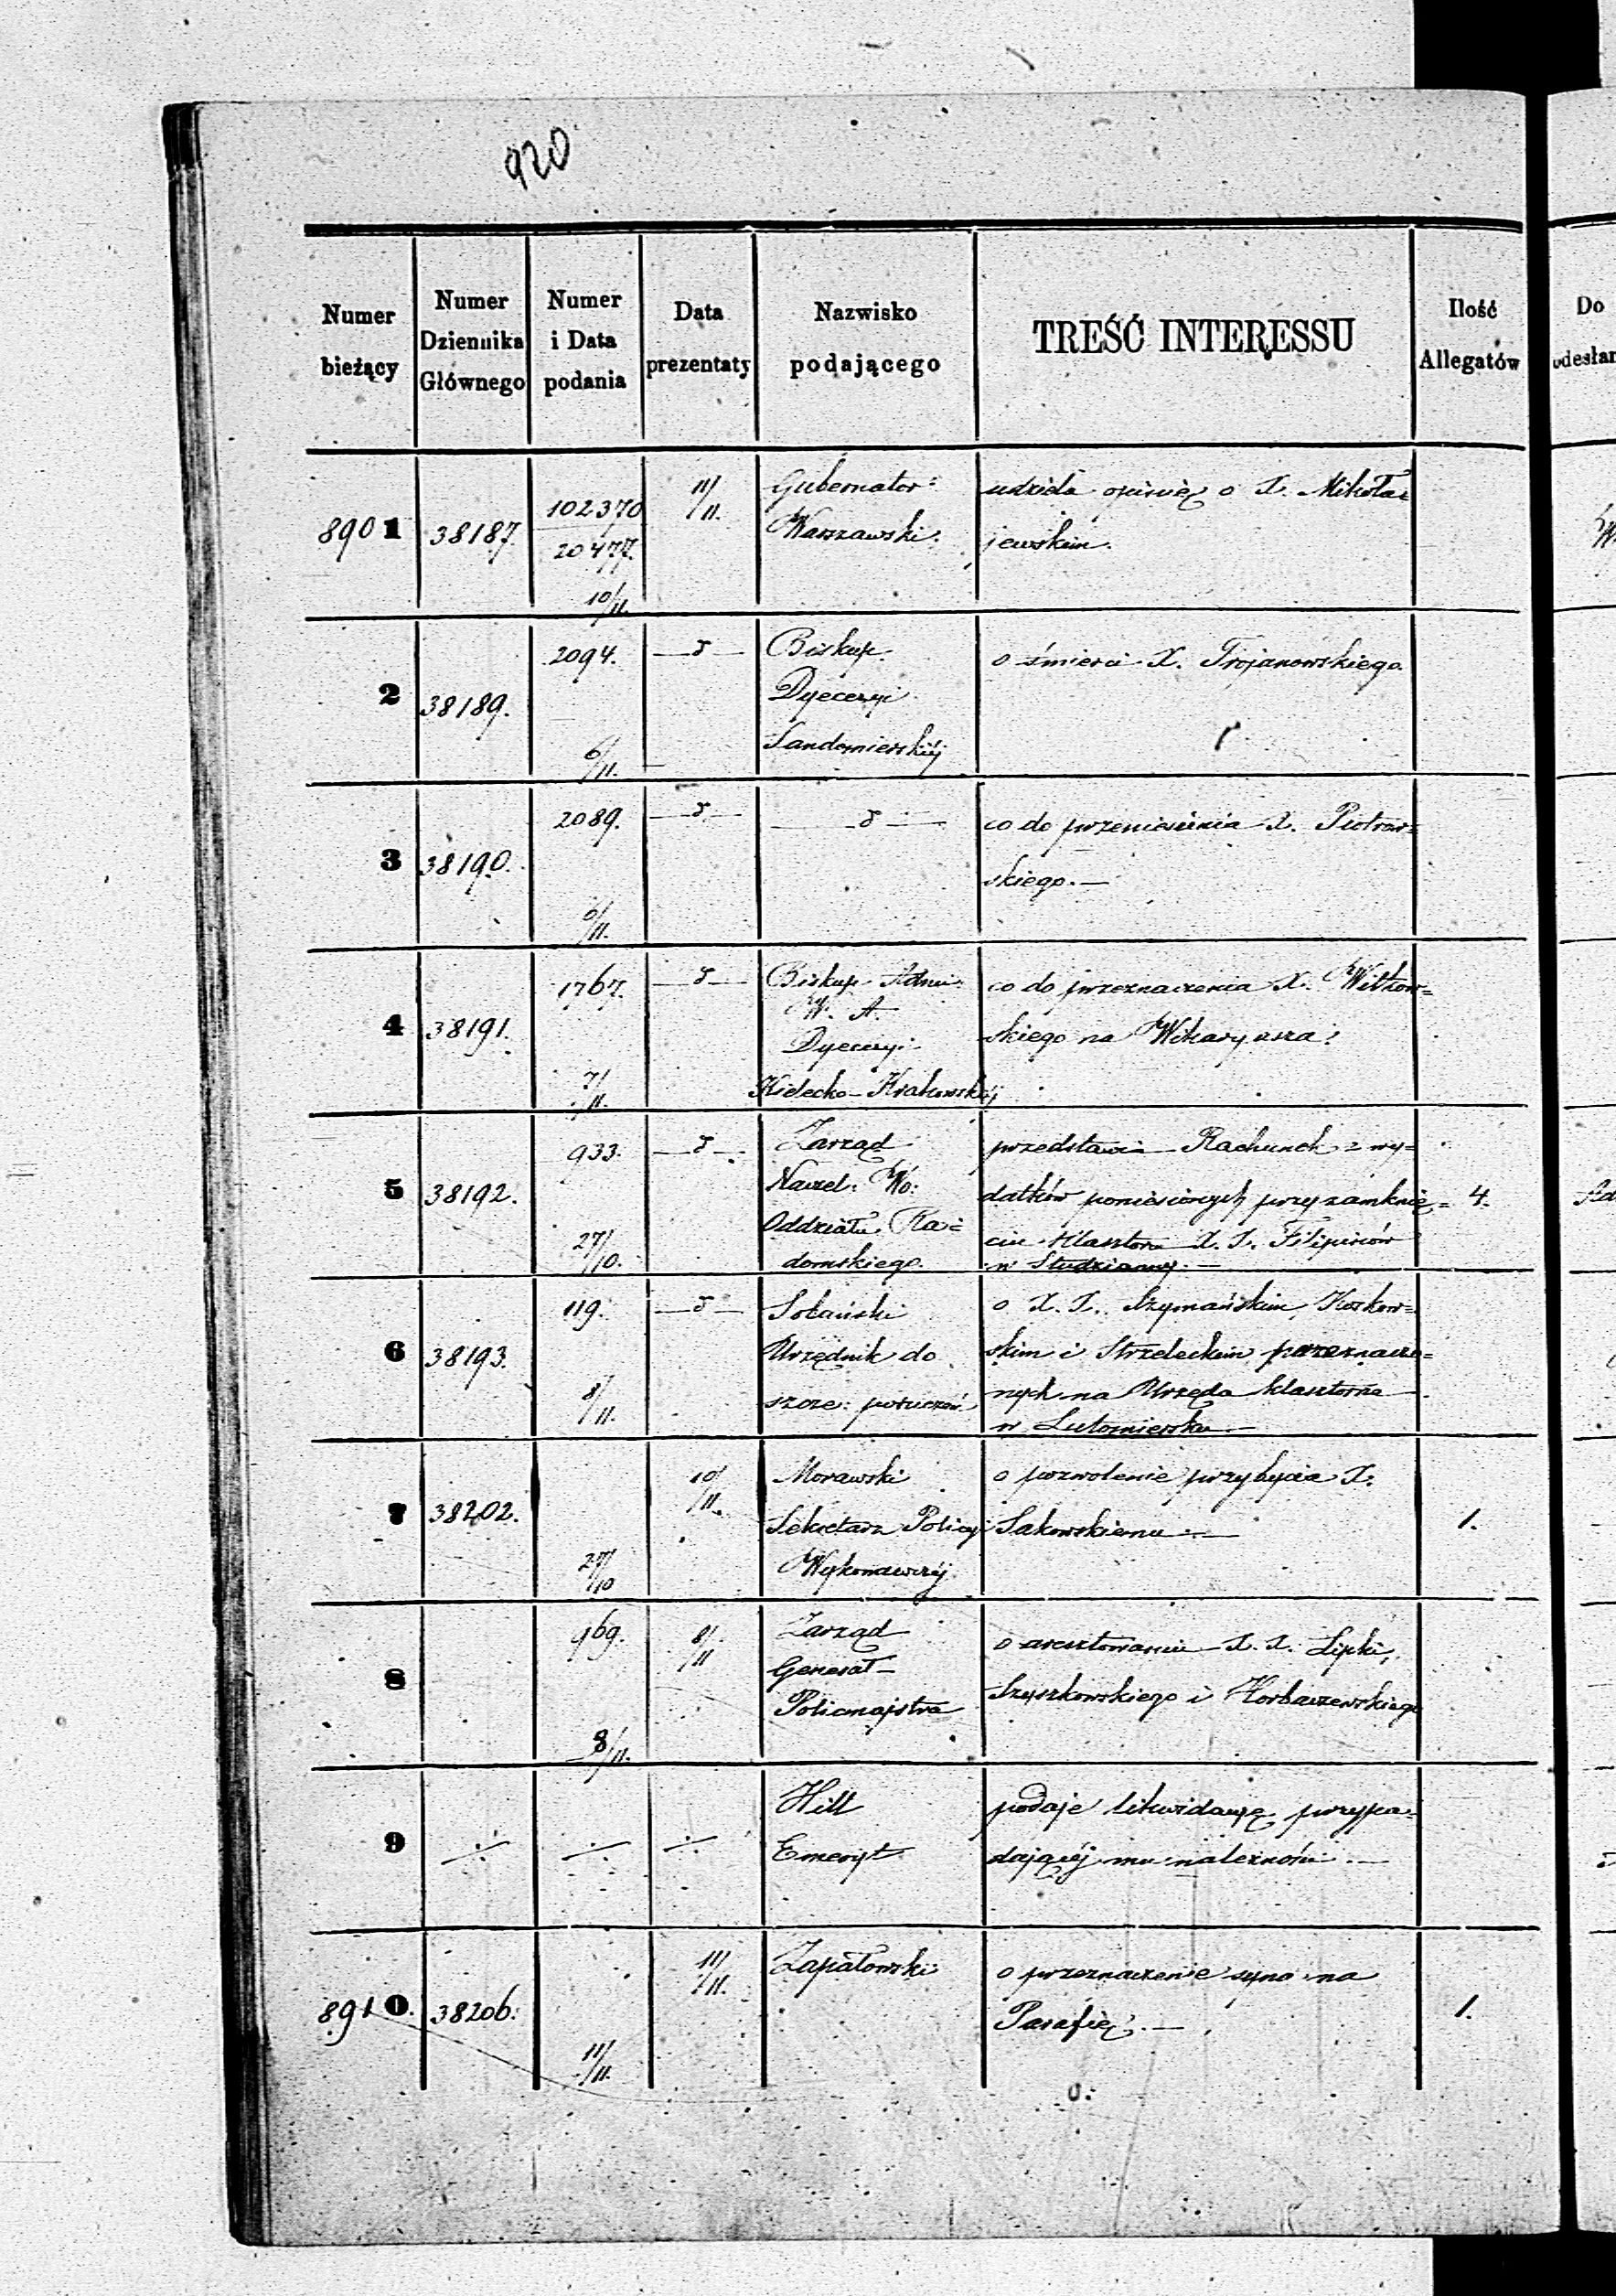 920
Numer bieżący
Numer Dziennika Głównego
Numer i Data podania
Data prezentaty
Nazwisko podającego
TREŚĆ INTERESSU
Ilość Allegatów
Do
8901
38187.
102370
20477.
10/11.
11/11.
Gubernator
Warszawski.
udziela opinię o X. Mikoła=
jewskim.
2
38189.
2094.
6/11.
Biskup
Dyecezyi
Sandomierskiéj
o śmierci X. Trojanowskiego
3
38190.
2089.
6/11.
co do przeniesienia X. Piotrow=
skiego.—
4
38191.
1767.
7/11.
Biskup Admi:
W. A.
Dyecezyi
Kielecko-Krakowskiéj
co do przeznaczenia X. Witkow=
skiego na Wikaryusza
5
38192.
933.
27/10.
Zarząd
Naczel: Wo:
Oddziału Ra=
domskiego.
przedstawia Rachunek z wy=
datków poniesionych przy zamknię=
ciu Klasztoru X. X. Filipinów
w Studziannej.—
4.
6
38193.
119.
8/11.
Sobański
Urzędnik do
szcze: poruczeń
o X. X. Szymańskim, Koskow=
skim i Strzeleckim przeznaczo=
nych na Urzęda klasztorne
w Lutomiersku.—
7
38202.
27/10
10/11.
Morawski
Sekretarz Policyi
Wykonawczéj
o pozwolenie przybycia X.
Sakowskiemu.—
1.
8
969.
8/11.
8/11
Zarząd
Generał-
Policmajstra
o aresztowaniu X. X. Lipki,
Szyszkowskiego i Horbaczewskiego
9
Hill
Emeryt
podaje likwidacyę przypa=
dającéj mu należności.—
8910.
38206.
11/11.
11/11.
Zapałowski
o przeznaczenie syna na
Parafię.—
1.